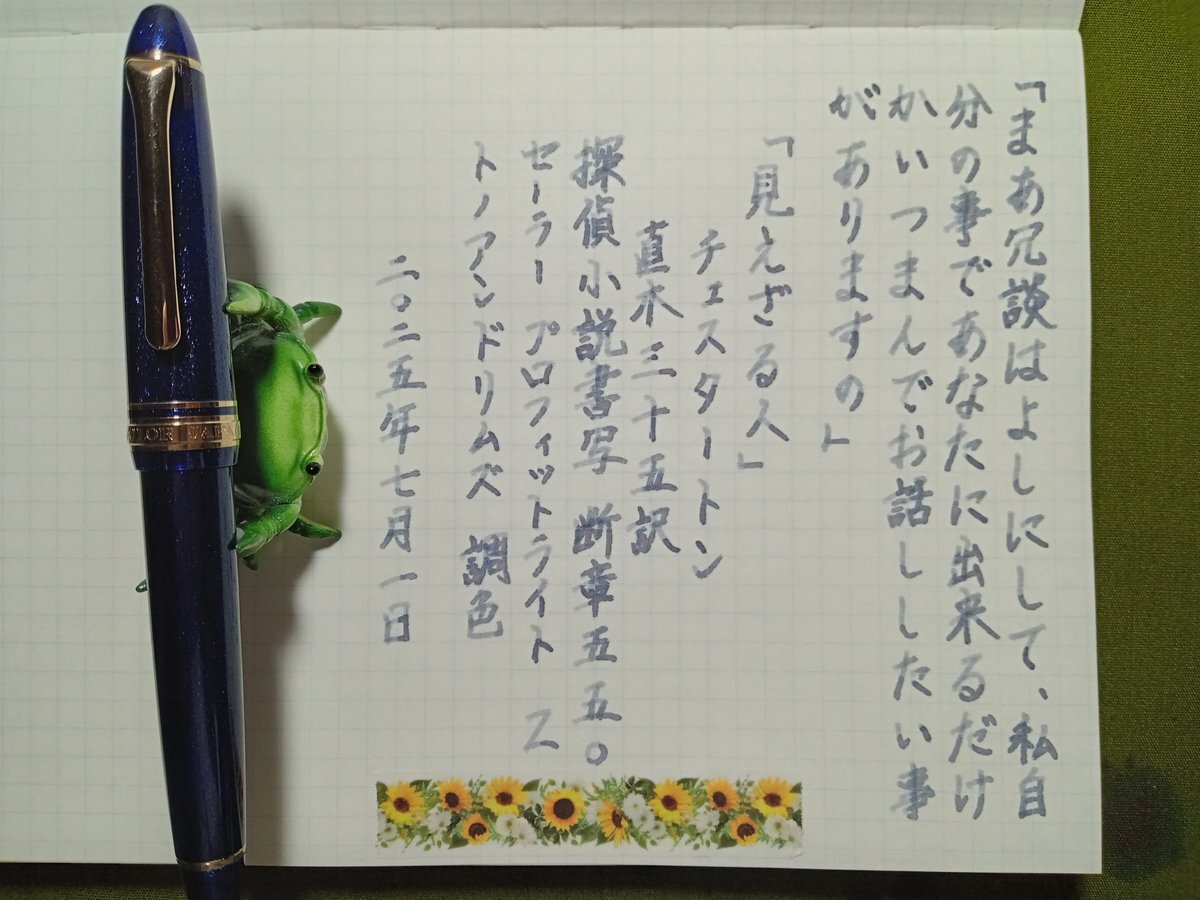 「まあ冗談はよしにして、私自
分の事であなたに出来るだけ
かいつまんでお話ししたい事
がありますの」
「見えざる人」
チェスタートン
直木三十五訳
探偵小説書写 断章五五〇
セーラー プロフィットライト ス
トノアンドリムズ 調色
二〇二五年七月一日